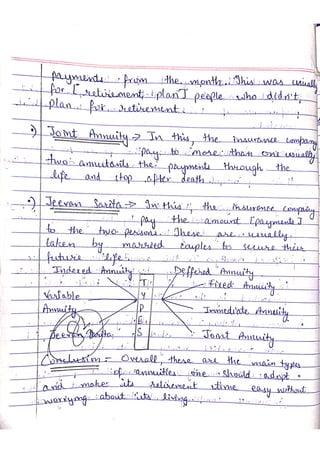 payments from the month. This was usually
for [retirement plan] people who didn't
plan for retirement.
Joint Annuity → In this, the insurance company
pay to more than one usually
two annuitants the payments through the
life and stop after death.
Jeevan Sarita → In this, the insurance company
pay the amount [payments]
to the two persons. These are usually
taken by married couples to secure their
future life.
Indexed Annuity Deffered Annuity
Variable Annuity T Y P E S Fixed Annuity
Immediate Annuity
Jeevan Sarita Joint Annuity
Conclusion :- Overall, these are the main types
of annuities one should adopt
and make its retirement time easy without
worrying about its living.